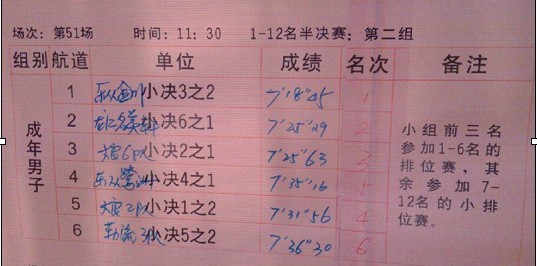 场次：第51场 时间：11：30 1-12名半决赛：第二组
组别 航道 单位 成绩 名次 备注
成年男子
1 小决3之2 7'18"45 1
2 小决6之1 7'25"29 2
3 小决2之1 7'25"63
4 小决4之1 7'35"16 5
5 小决1之2 7'31"56 4
6 勒流 小决5之2 7'36"30 6
小组前三名
参加1-6名的
排位赛，其
余参加7-
12名的小排
位赛。